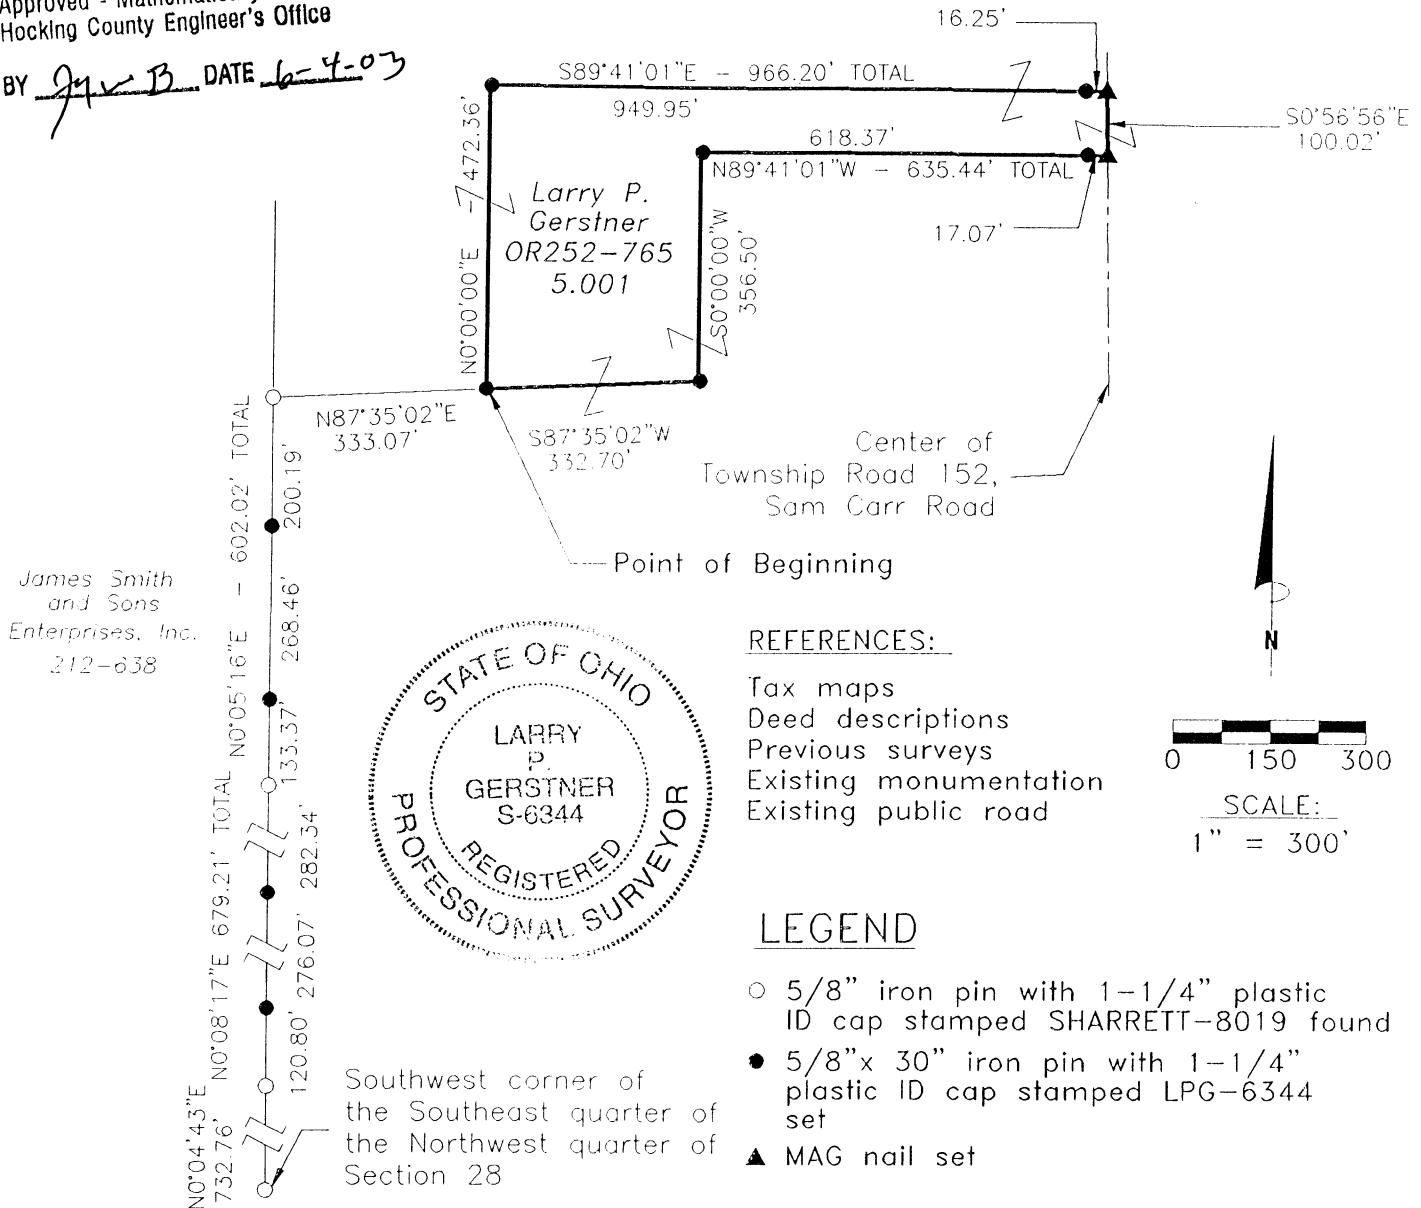 Hocking County Engineer's Office
BY DATE 6-4-03
16.25'
S89°41'01"E - 966.20' TOTAL
949.95'
S0°56'56"E
100.02'
618.37'
N89°41'01"W - 635.44' TOTAL
17.07'
N0°00'00"E - 472.36'
Larry P.
Gerstner
OR252-765
5.001
S0°00'00"W
356.50'
N87°35'02"E
333.07'
S87°35'02"W
332.70'
Center of
Township Road 152,
Sam Carr Road
Point of Beginning
N0°05'16"E - 602.02' TOTAL
200.19'
268.46'
133.37'
James Smith
and Sons
Enterprises, Inc.
212-638
N0°08'17"E 679.21' TOTAL
282.34'
276.07'
120.80'
N0°04'43"E
732.76'
Southwest corner of
the Southeast quarter of
the Northwest quarter of
Section 28
STATE OF OHIO
LARRY
P.
GERSTNER
S-6344
REGISTERED
PROFESSIONAL SURVEYOR
REFERENCES:
Tax maps
Deed descriptions
Previous surveys
Existing monumentation
Existing public road
N
0 150 300
SCALE:
1" = 300'
LEGEND
5/8" iron pin with 1-1/4" plastic
ID cap stamped SHARRETT-8019 found
5/8"x 30" iron pin with 1-1/4"
plastic ID cap stamped LPG-6344
set
MAG nail set